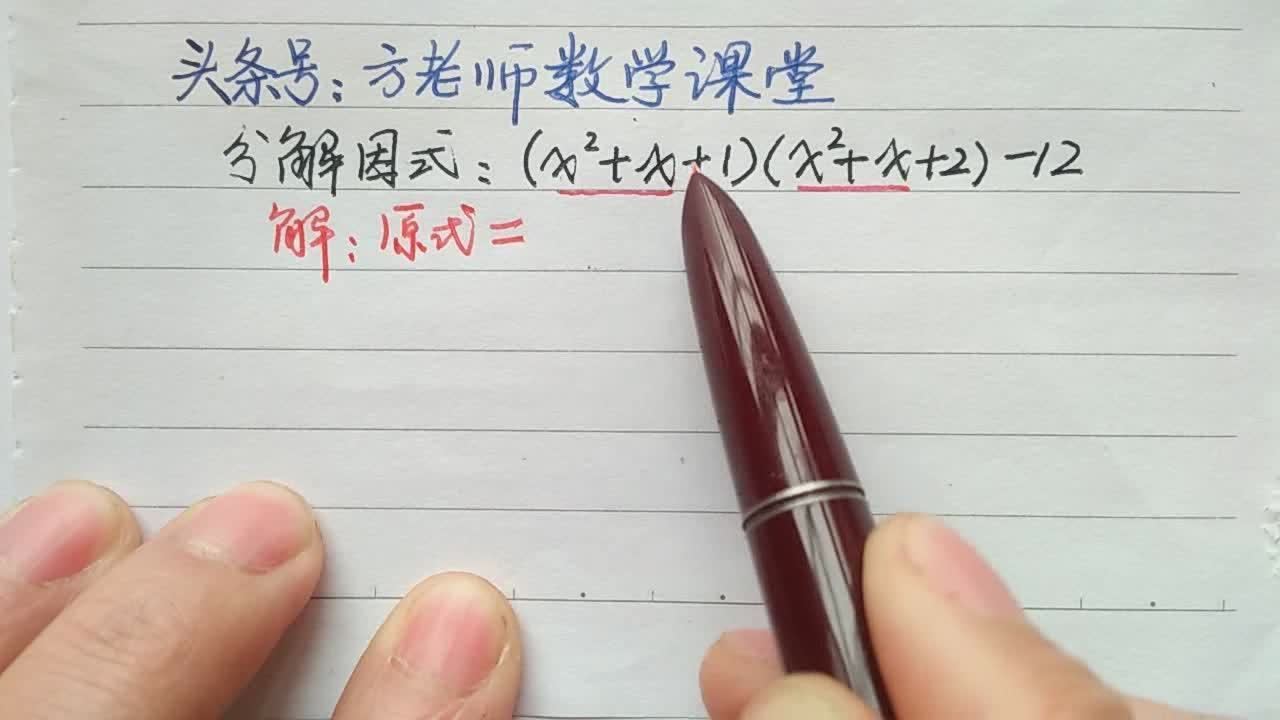 头条号：方老师数学课堂
分解因式：(x²+x+1)(x²+x+2)-12
解：原式=